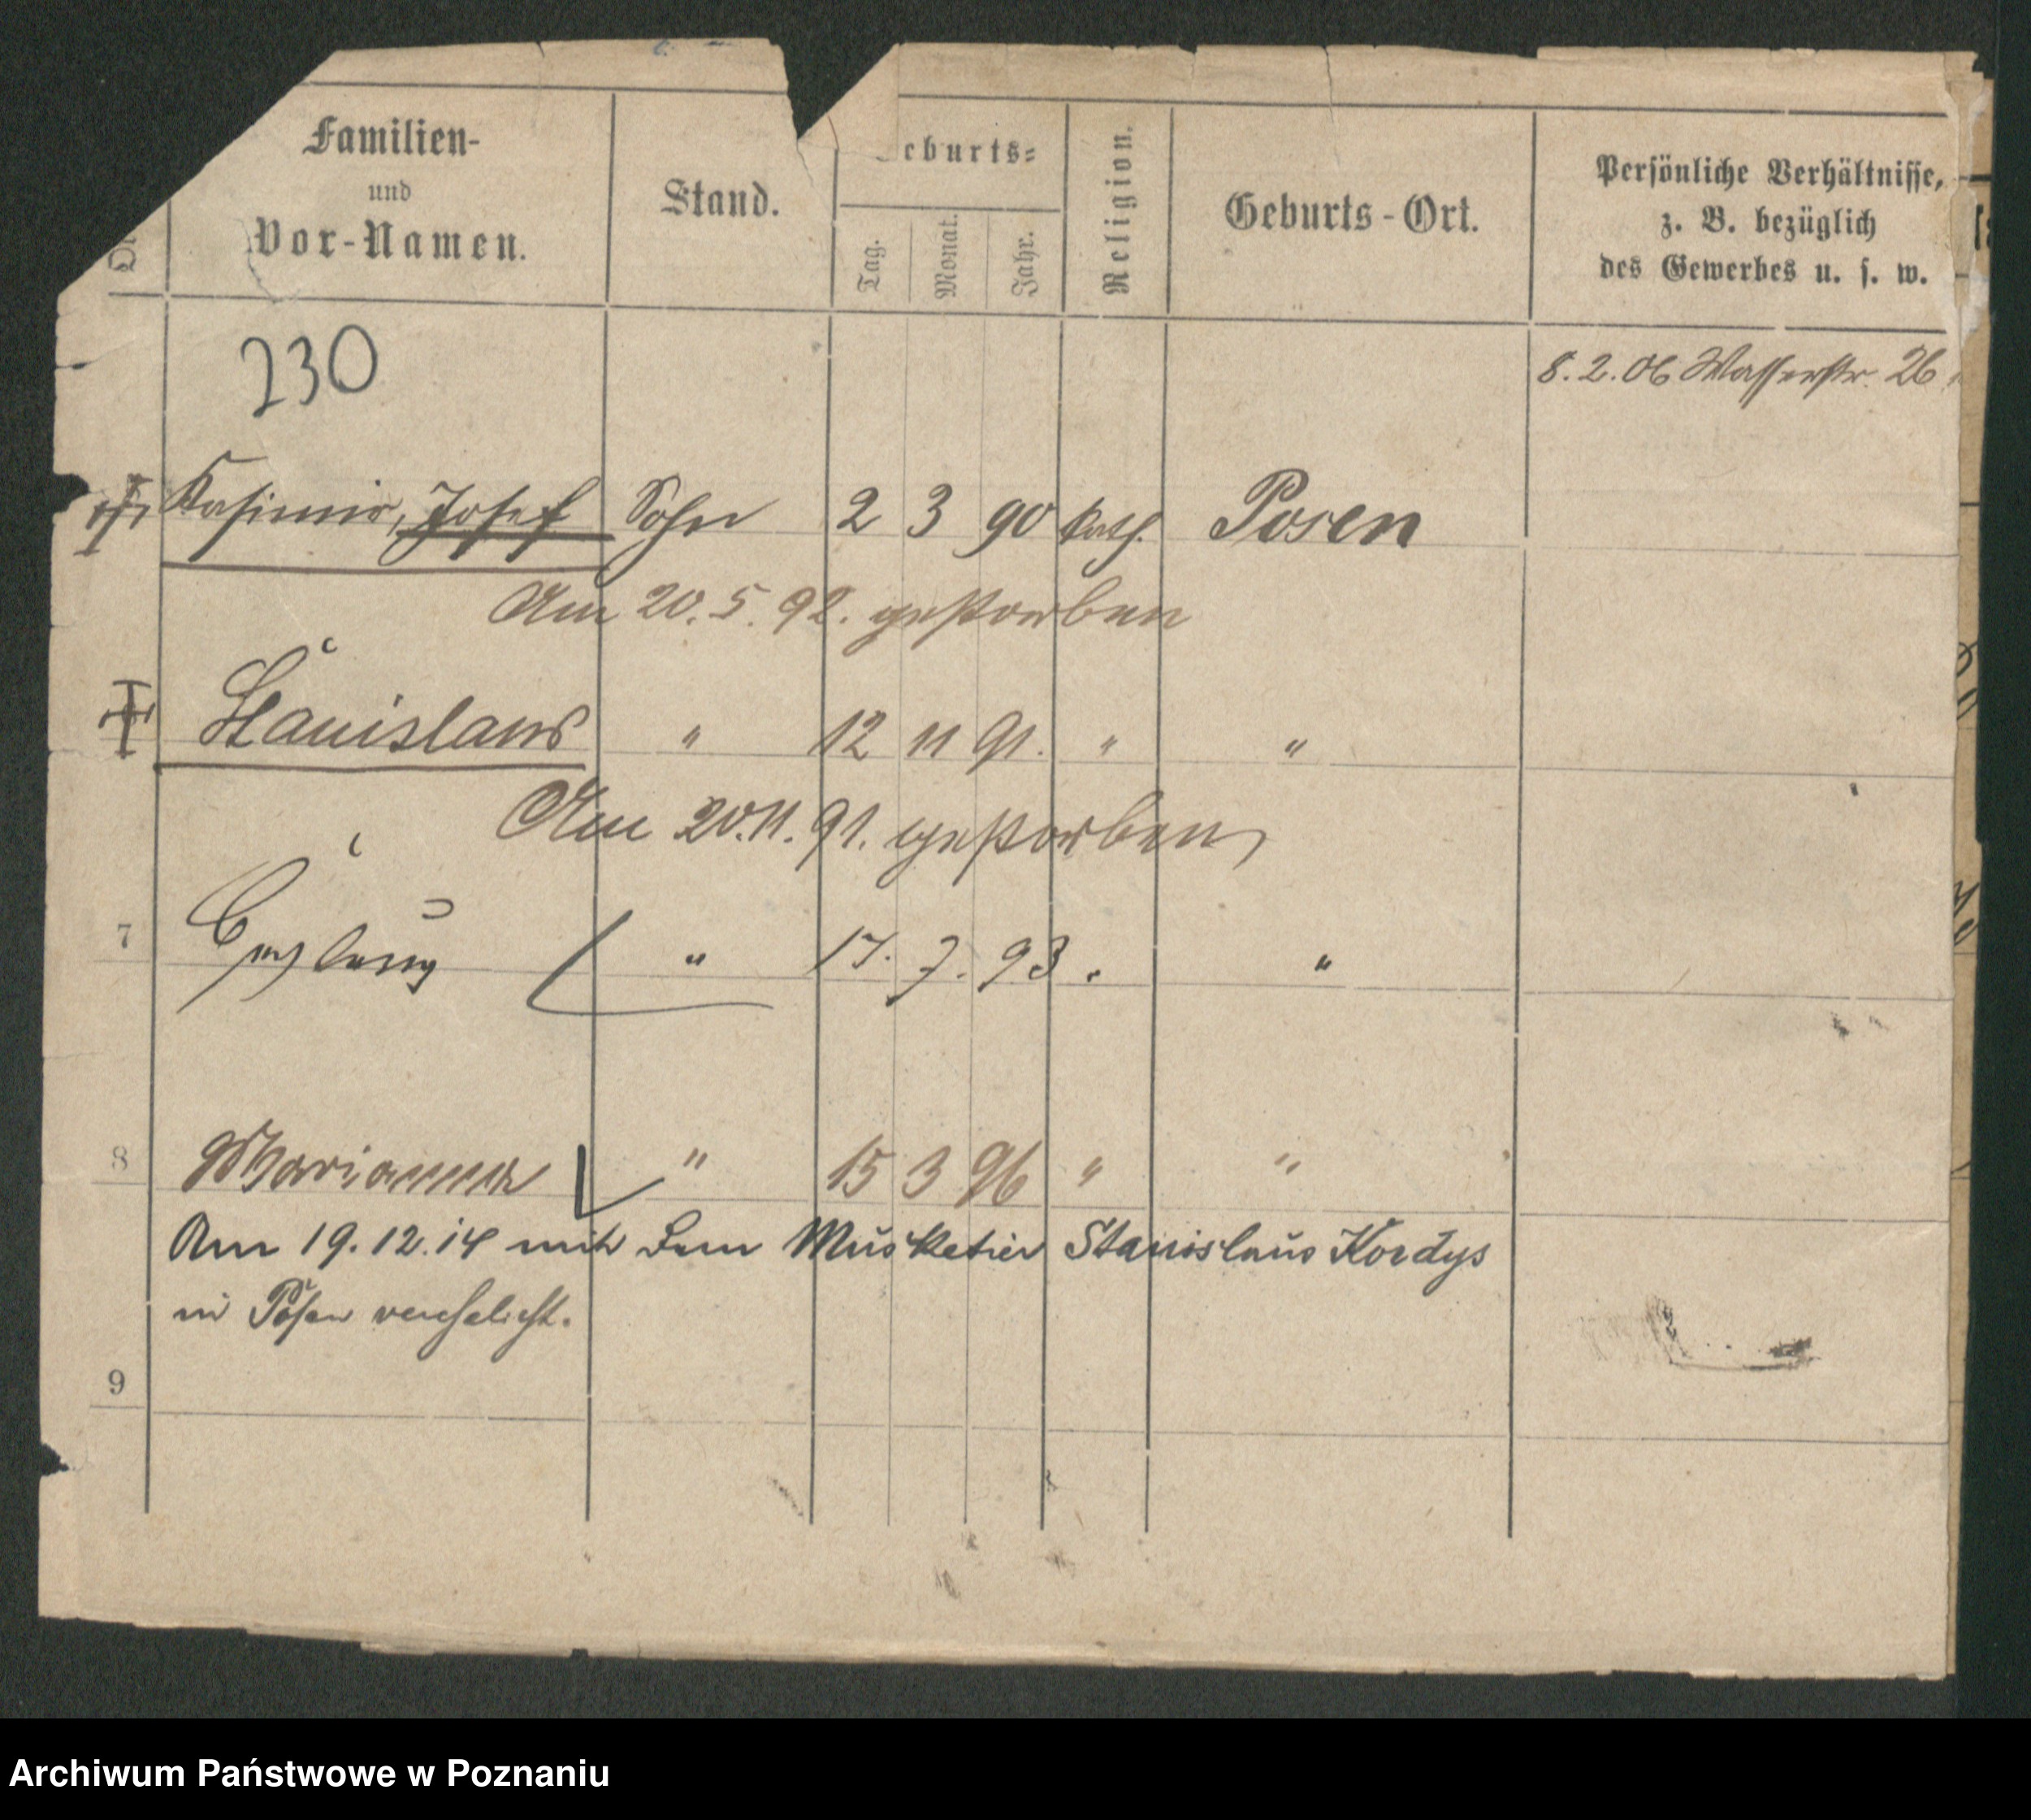 Familien-
und
Vor-Namen.
Stand.
eburts-
Tag.
Monat.
Jahr.
Religion.
Geburts-Ort.
Persönliche Verhältnisse,
z. B. bezüglich
des Gewerbes u. s. w.
230
8. 2. 06 Wasserstr. 26
Kasimir, Josef Sohn 2 3 90 kath. Posen
Am 20. 5. 92. gestorben
Stanislaus " 12 11 91. " "
Am 20. 11. 91. gestorben
7 " 17. 7. 93. "
8 Marianna " 15 3 96 " "
Am 19. 12. 14 mit dem Musketier Stanislaus Kordys
in Posen verehelicht.
9
Archiwum Państwowe w Poznaniu